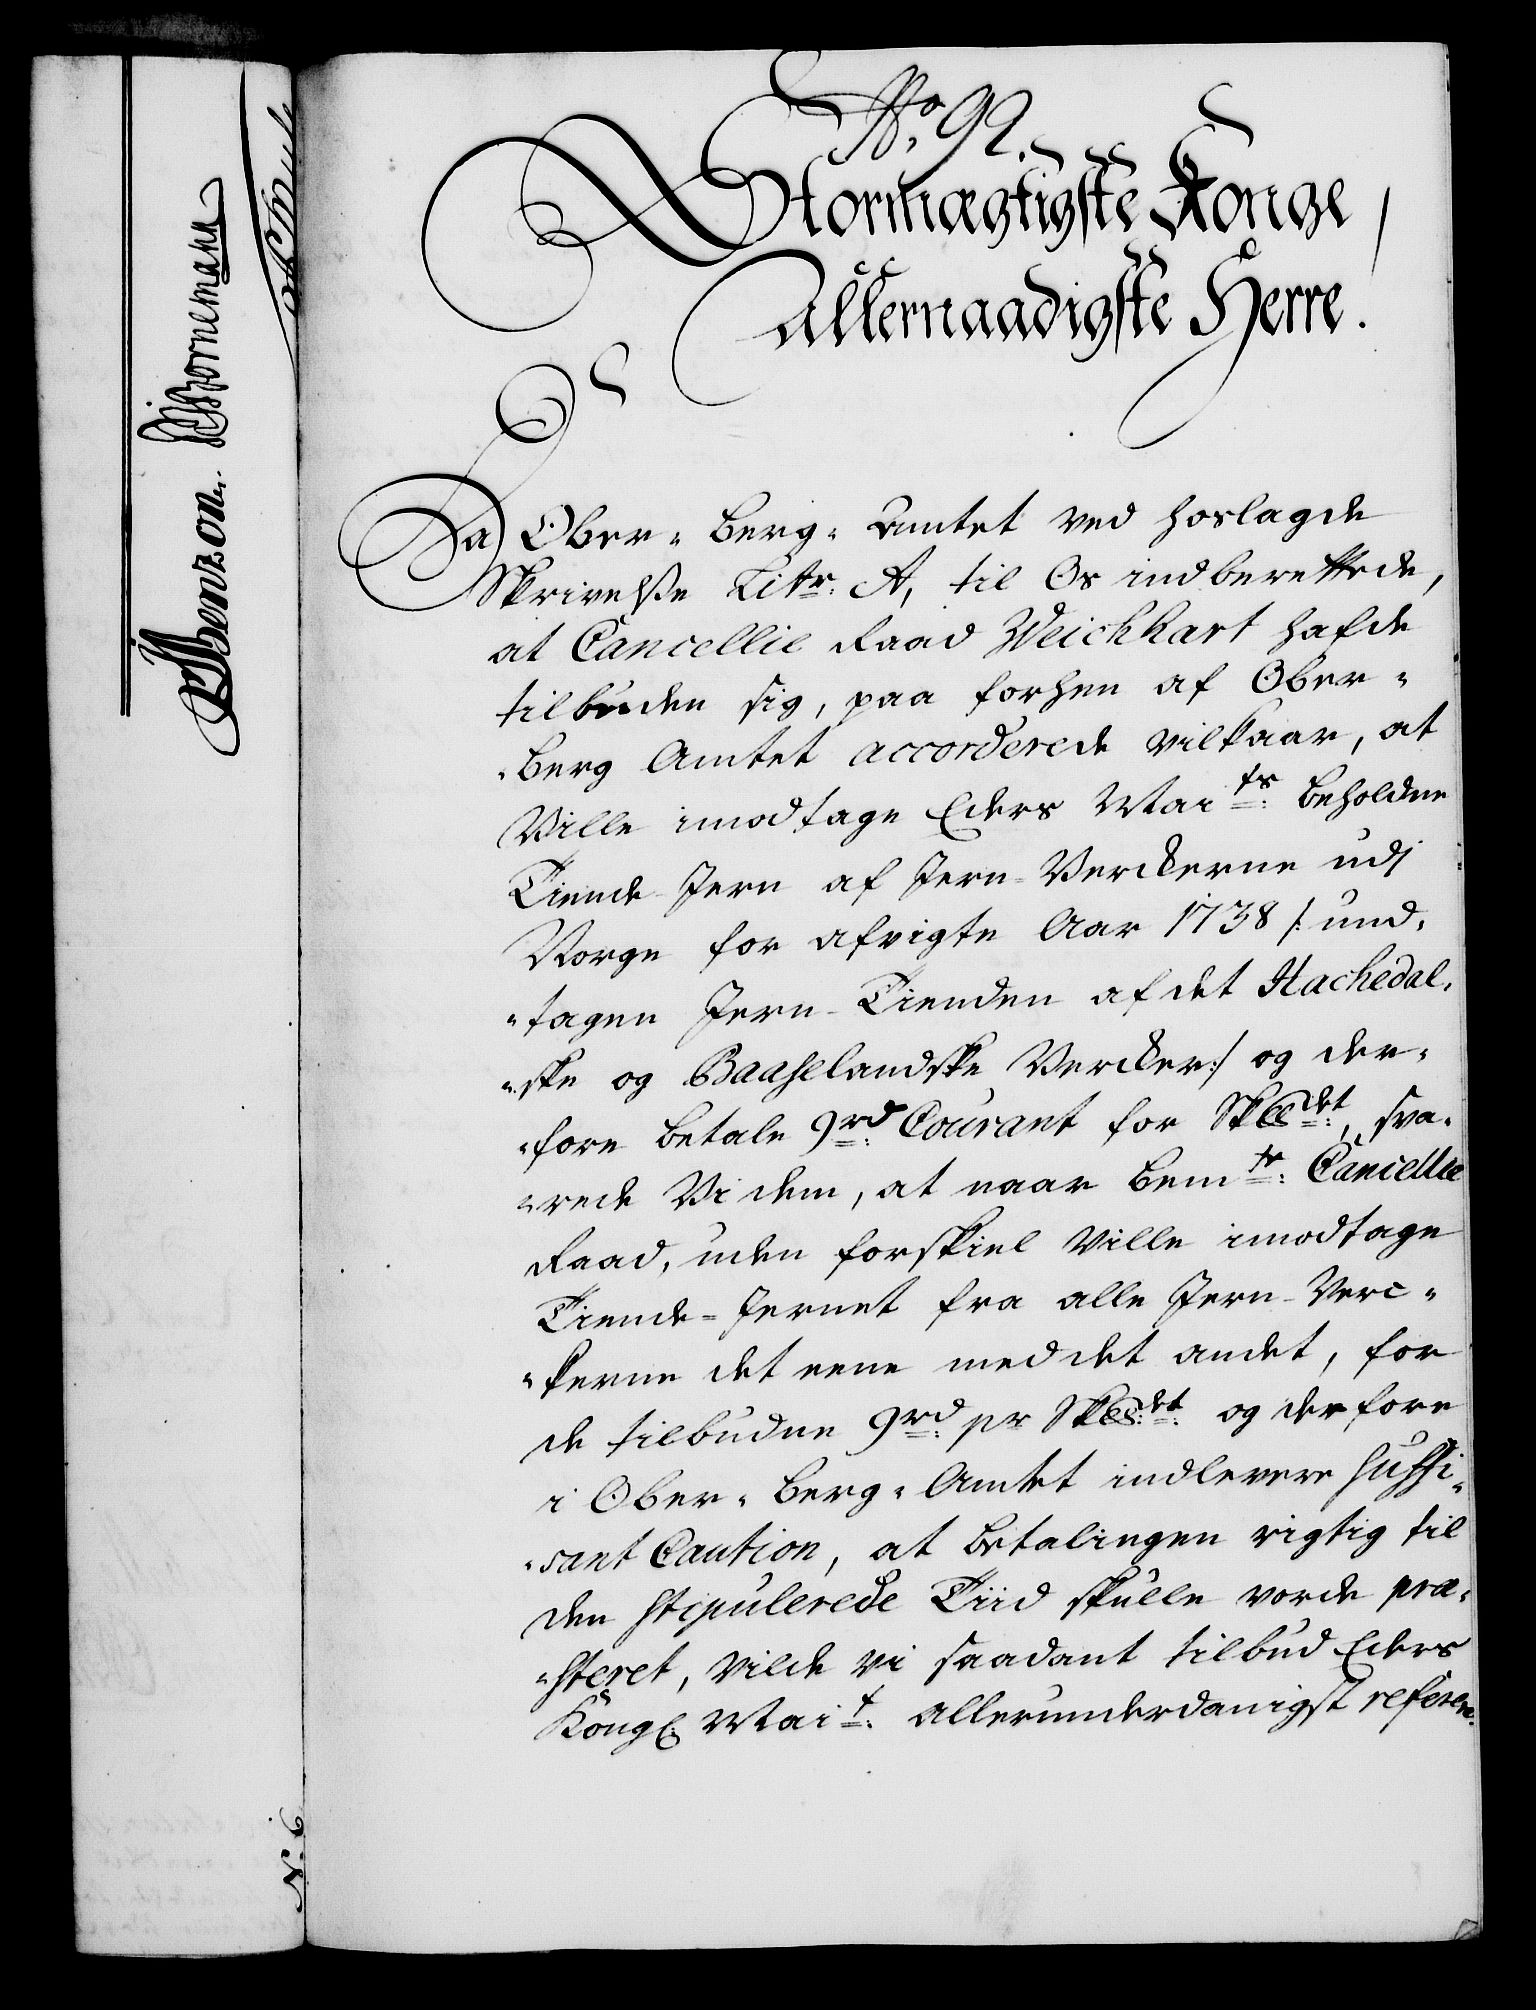 No. 92.
Stormægtigste Konge
Allernaadigste Herre.
Da Ober-Berg-Amtet ved hoslagde
Skrivelse Litr: A, til Os indberettede,
at Cancellie Raad Weichhart hafde
tilbuden sig, paa forhen af Ober-
-Berg Amtet accorderede Vilkaar, at
Ville imodtage Eders Maits: beholdne
Tiende-Jern af Jern-Verckerne udj
Norge for afvigte Aar 1738 /: und-
-tagen Jern-Tienden af det Hachedal-
-ske og Baaselandske Vercker:/ og der-
-fore betale 9rd: Courant for Sk℔dt:, sva-
-rede Vi dem, at naar bemte: Cancellie
Raad, uden forskiel Ville imodtage
Tiende-Jernet fra alle Jern-Verc-
-kerne det eene med det andet, for
de tilbudne 9rd: pr Sk℔dt: og derfore
i Ober-Berg-Amtet indlevere suffi-
-sant Caution, at betalingen rigtig til
den stipulerede Tiid skulle vorde præ-
-steret, vilde vi saadant tilbud Eders
Kongl: Mait: allerunderdanigst refere-
Benzon. Bornemann
N. 6